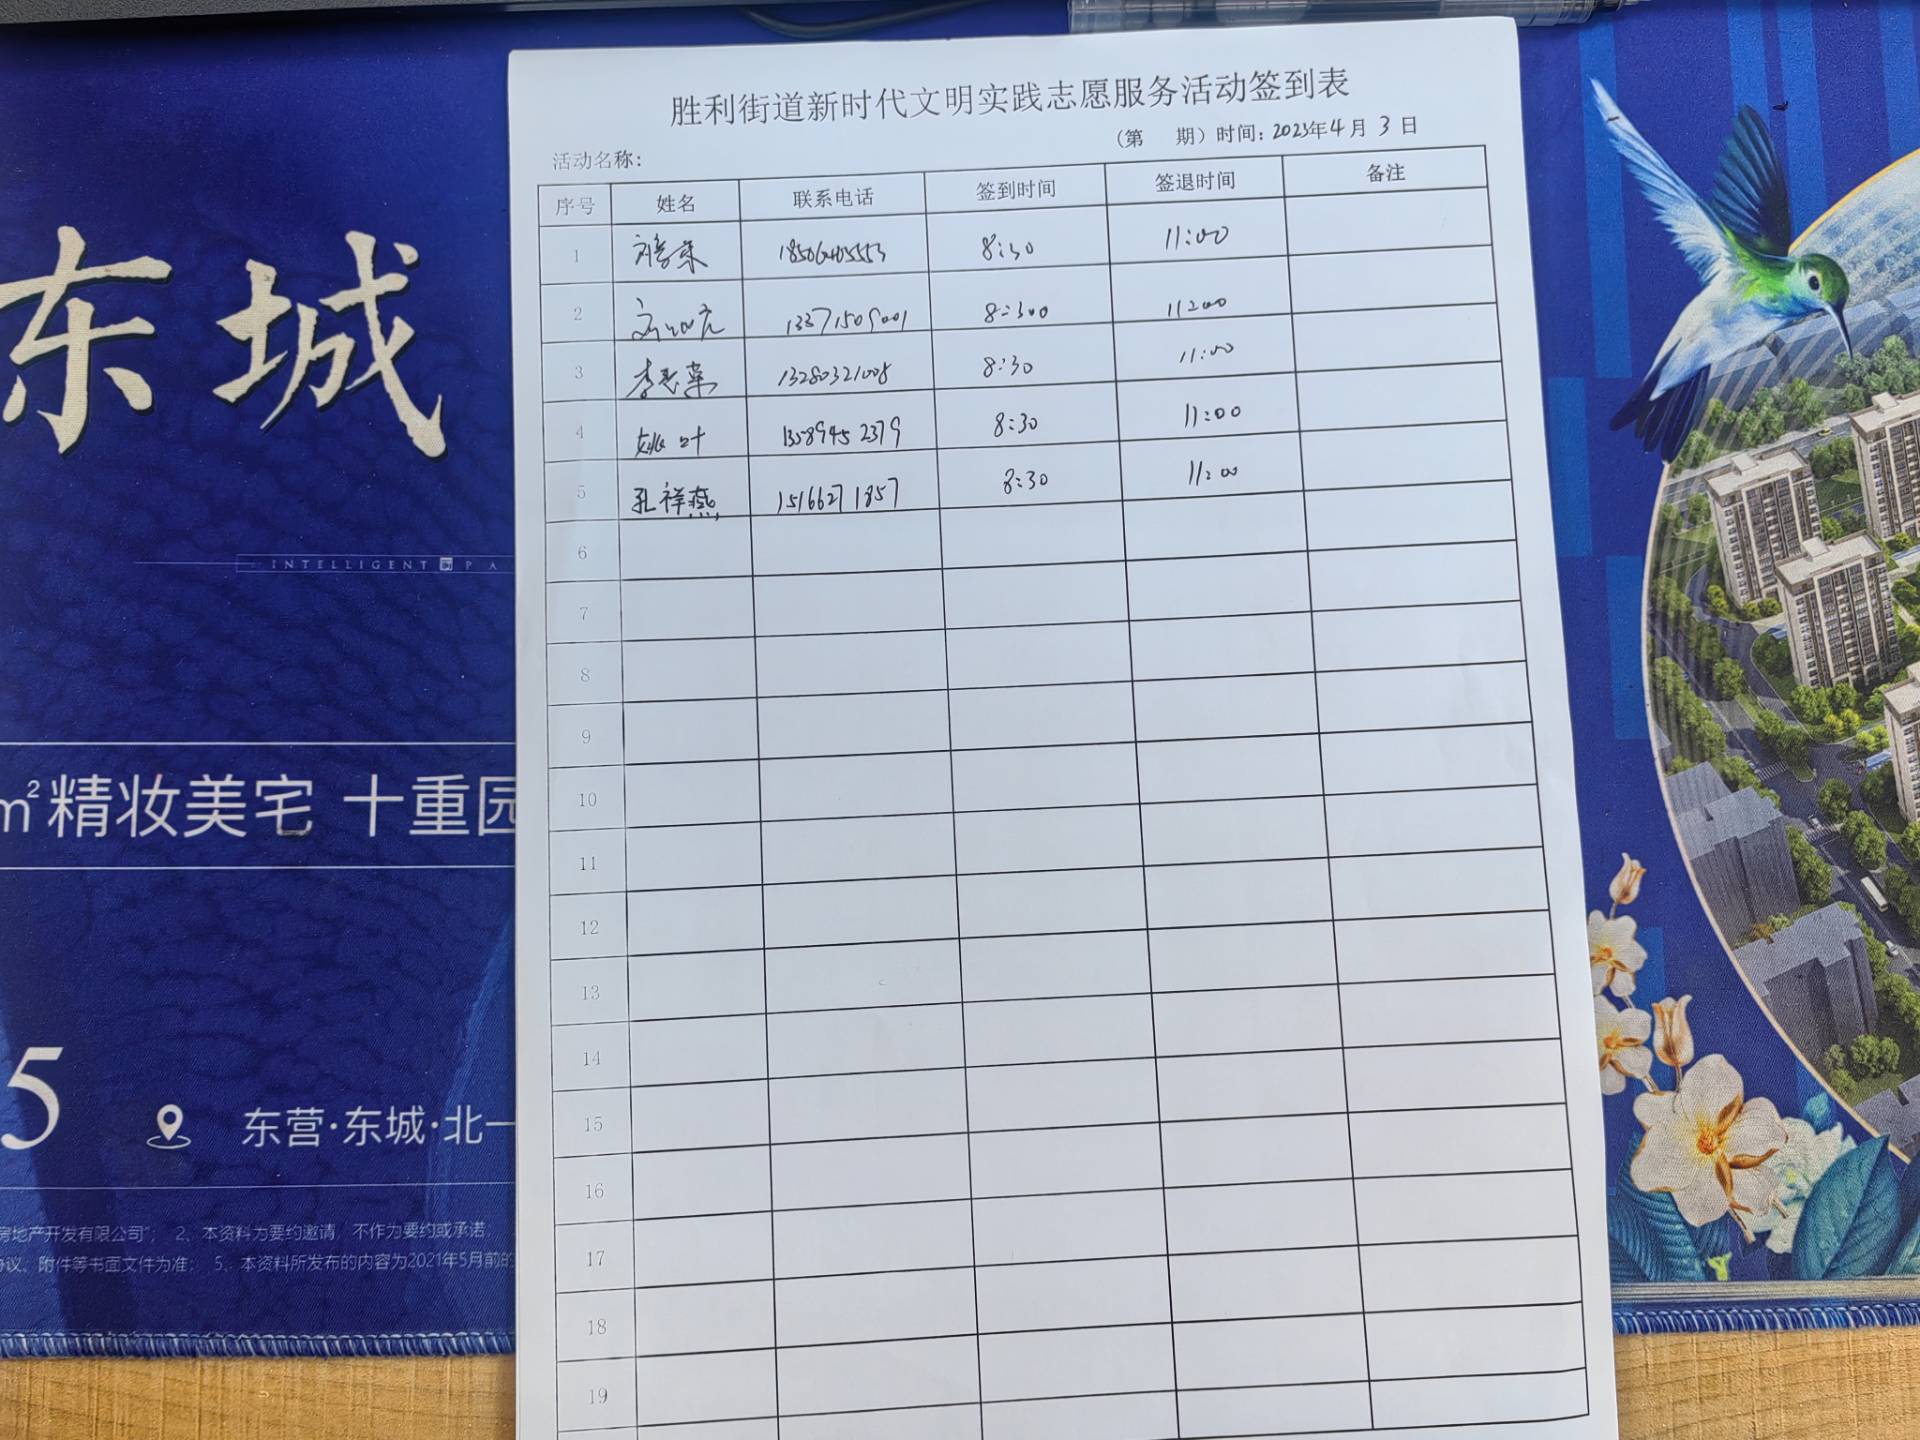 胜利街道新时代文明实践志愿服务活动签到表
(第 期) 时间: 2023年4月3日
活动名称:
序号 姓名 联系电话 签到时间 签退时间 备注
1 8:30 11:00
2 13371509001 8:300 11:00
3 李老莱 13280321008 8:30 11:00
4 姚叶 13589452379 8:30 11:00
5 孔祥燕 15166271857 8:30 11:00
6
7
8
9
10
11
12
13
14
15
16
17
18
19
东城
INTELLIGENT PA
m²精妆美宅 十重园
5
东营·东城·北一
房地产开发有限公司"; 2、本资料为要约邀请,不作为要约或承诺;
协议、附件等书面文件为准; 5、本资料所发布的内容为2021年5月前的